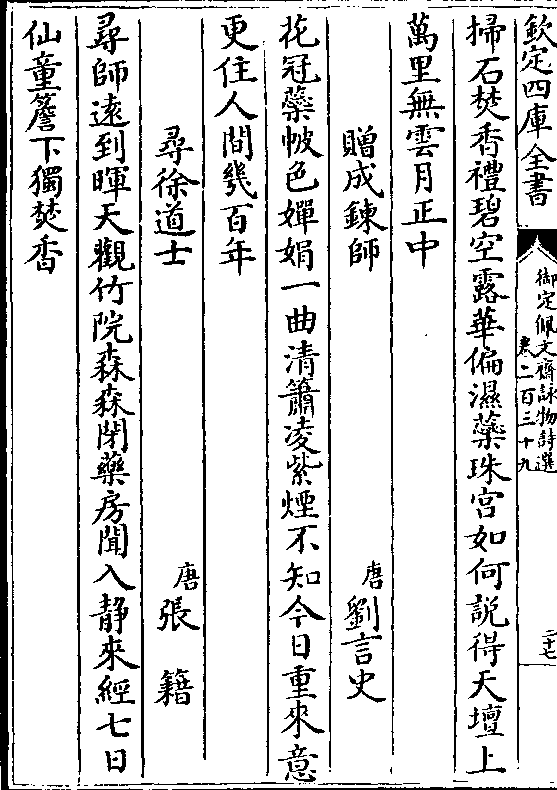 欽定四庫全書
御定佩文齋詠物詩選
卷二百三十九
二十七
掃石焚香禮碧空露華偏濕蘂珠宫如何説得天壇上
萬里無雲月正中
贈成鍊師
唐劉言史
花冠蘂帔色嬋娟一曲清簫凌紫煙不知今日重來意
更住人間幾百年
尋徐道士
唐張籍
尋師遠到暉天觀竹院森森閉藥房聞入静來經七日
仙童簷下獨焚香